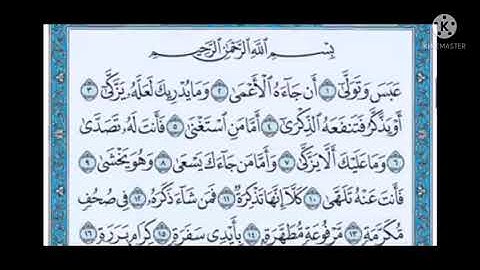 بِسْمِ اللَّهِ الرَّحْمَٰنِ الرَّحِيمِ
عَبَسَ وَتَوَلَّىٰ ١ أَن جَاءَهُ الْأَعْمَىٰ ٢ وَمَا يُدْرِيكَ لَعَلَّهُ يَزَّكَّىٰ ٣
أَوْ يَذَّكَّرُ فَتَنفَعَهُ الذِّكْرَىٰ ٤ أَمَّا مَنِ اسْتَغْنَىٰ ٥ فَأَنتَ لَهُ تَصَدَّىٰ
٦ وَمَا عَلَيْكَ أَلَّا يَزَّكَّىٰ ٧ وَأَمَّا مَن جَاءَكَ يَسْعَىٰ ٨ وَهُوَ يَخْشَىٰ ٩
فَأَنتَ عَنْهُ تَلَهَّىٰ ١٠ كَلَّا إِنَّهَا تَذْكِرَةٌ ١١ فَمَن شَاءَ ذَكَرَهُ ١٢ فِي صُحُفٍ
مُّكَرَّمَةٍ ١٣ مَّرْفُوعَةٍ مُّطَهَّرَةٍ ١٤ بِأَيْدِي سَفَرَةٍ ١٥ كِرَامٍ بَرَرَةٍ ١٦
KINEMASTER